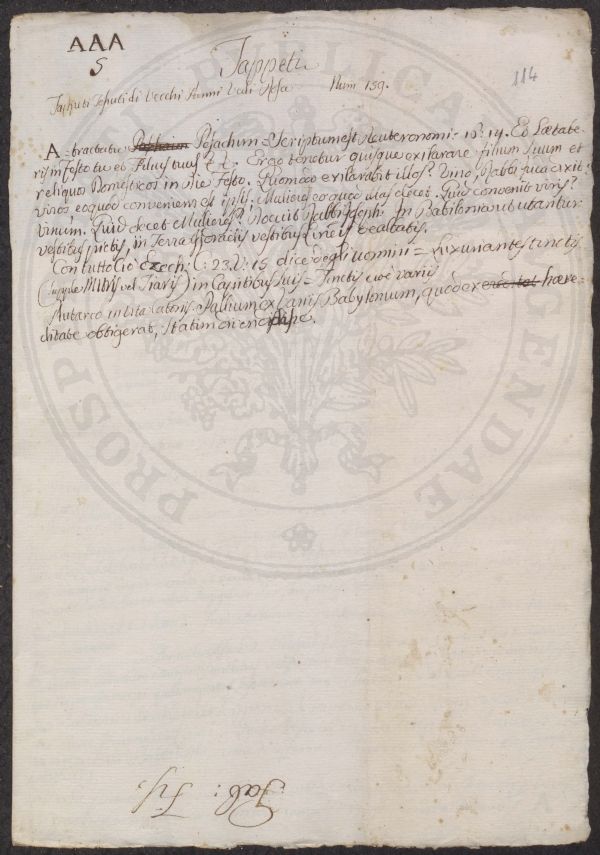 AAA
5
Tappeti
114
Tappeti di Vecchi Panni Vedi Num 159.
A. tractatu Pesachum = Scriptum est Deuteronomi: 16: 14. Et Laetabe
ris in festo tu et Filius tuus et c. Ergo tenetur quisque exilarare filium suum et
reliquos Domesticos in die Festo. Quomodo exilarabit illos? Vino. Rabbi Juda dixit:
viros eo quod conveniens est ipsis: Mulieres eo quod illas decet. Quid convenit viris?
vinum. Quid decet Mulieres? Docuit Rabbi Joseph: In Babilonia ut utantur
vestibus pictis, in Terra Israelis vestibus lineis dealbatis.
Con tutto ciò Ezech: C: 23. V: 15 dice degli uomini = Luxuriantes tinctis
(supple Mitris vel Tiaris) in Capitibus suis = Tinctis cioè varii
Plutarco in Vita Catonis. Pallium ex lanis Babylonium, quod ex haere-
ditate obtigerat, statim
Tab:
PROSPERITATI PUBLICAE AUGENDAE